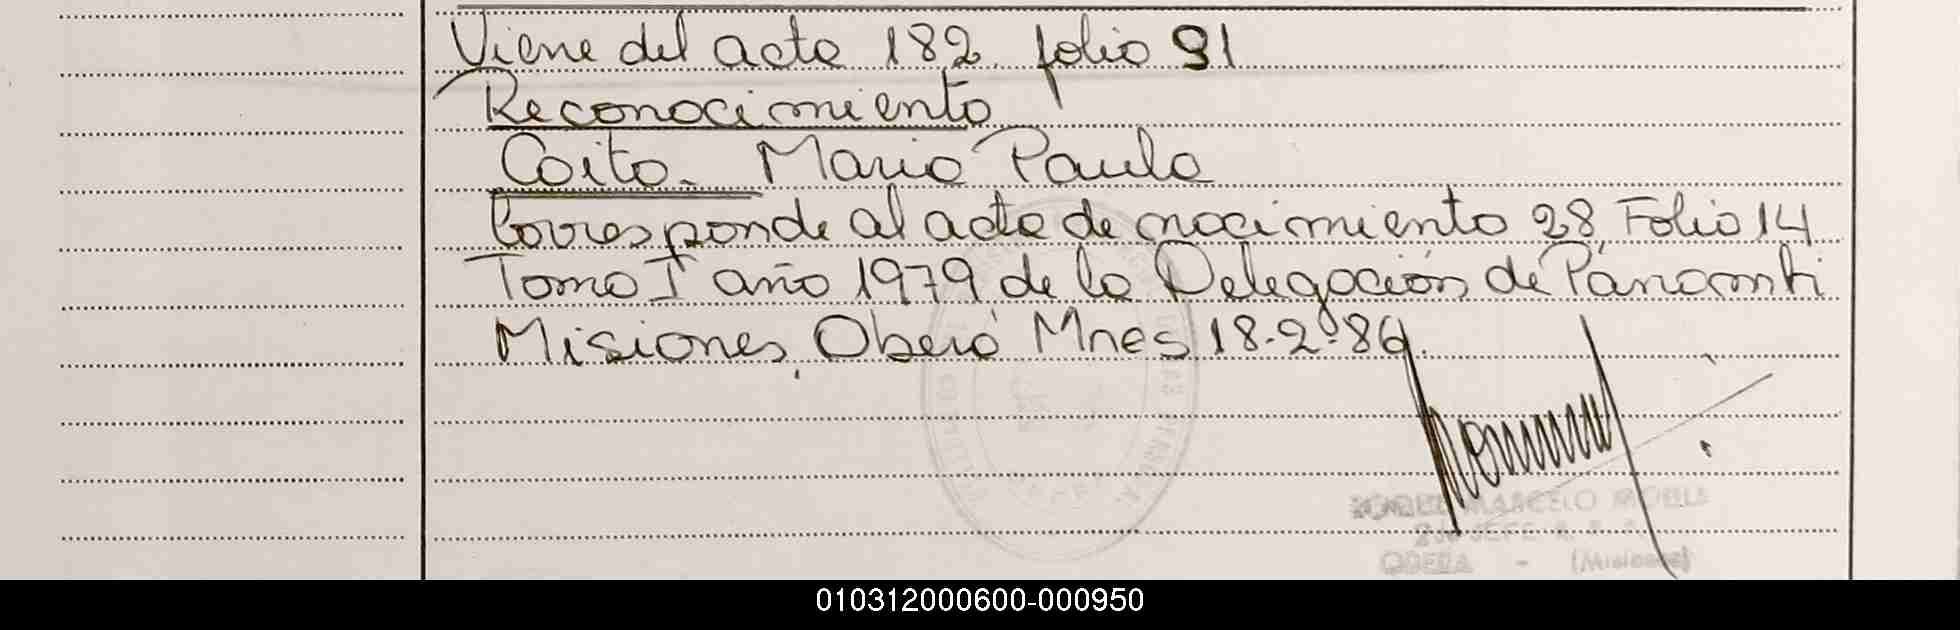 Viene del acta 182 folio 91
Reconocimiento
Coito - Mario Paulo
Corresponde al acta de nacimiento 28 Folio 14
Tomo I año 1979 de la Delegación de Panambi
Misiones, Oberá Mnes 18-2-86.
MARCELO
OBERA - (Misiones)
010312000600-000950